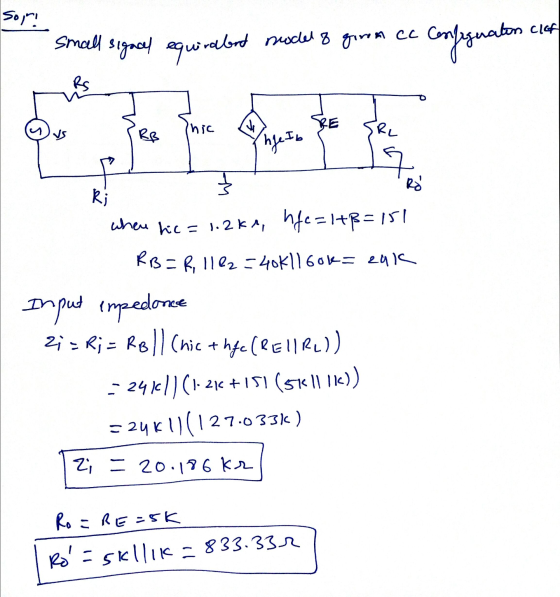 Sol'n:
small signal equivalent model of given CC Configuration ckt
Rs
Vs
RB
hic
hfeIb
RE
RL
Ri
Ro'
when hic = 1.2kΩ, hfc = 1+β = 151
RB = R1||R2 = 40K||60K = 24K
Input impedance
Zi = Ri = RB||(hic + hfc(RE||RL))
= 24K||(1.2K+151(5K||1K))
= 24K||(127.033K)
Zi = 20.186 KΩ
Ro = RE = 5K
Ro' = 5K||1K = 833.33Ω